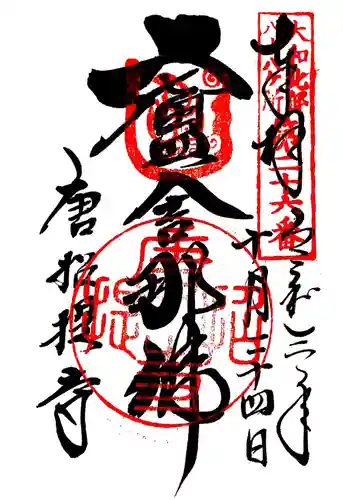 奉拝
令和三年
十月二十四日
大和北部
八十八ヶ所第二十六番
盧舎那佛
唐招提寺